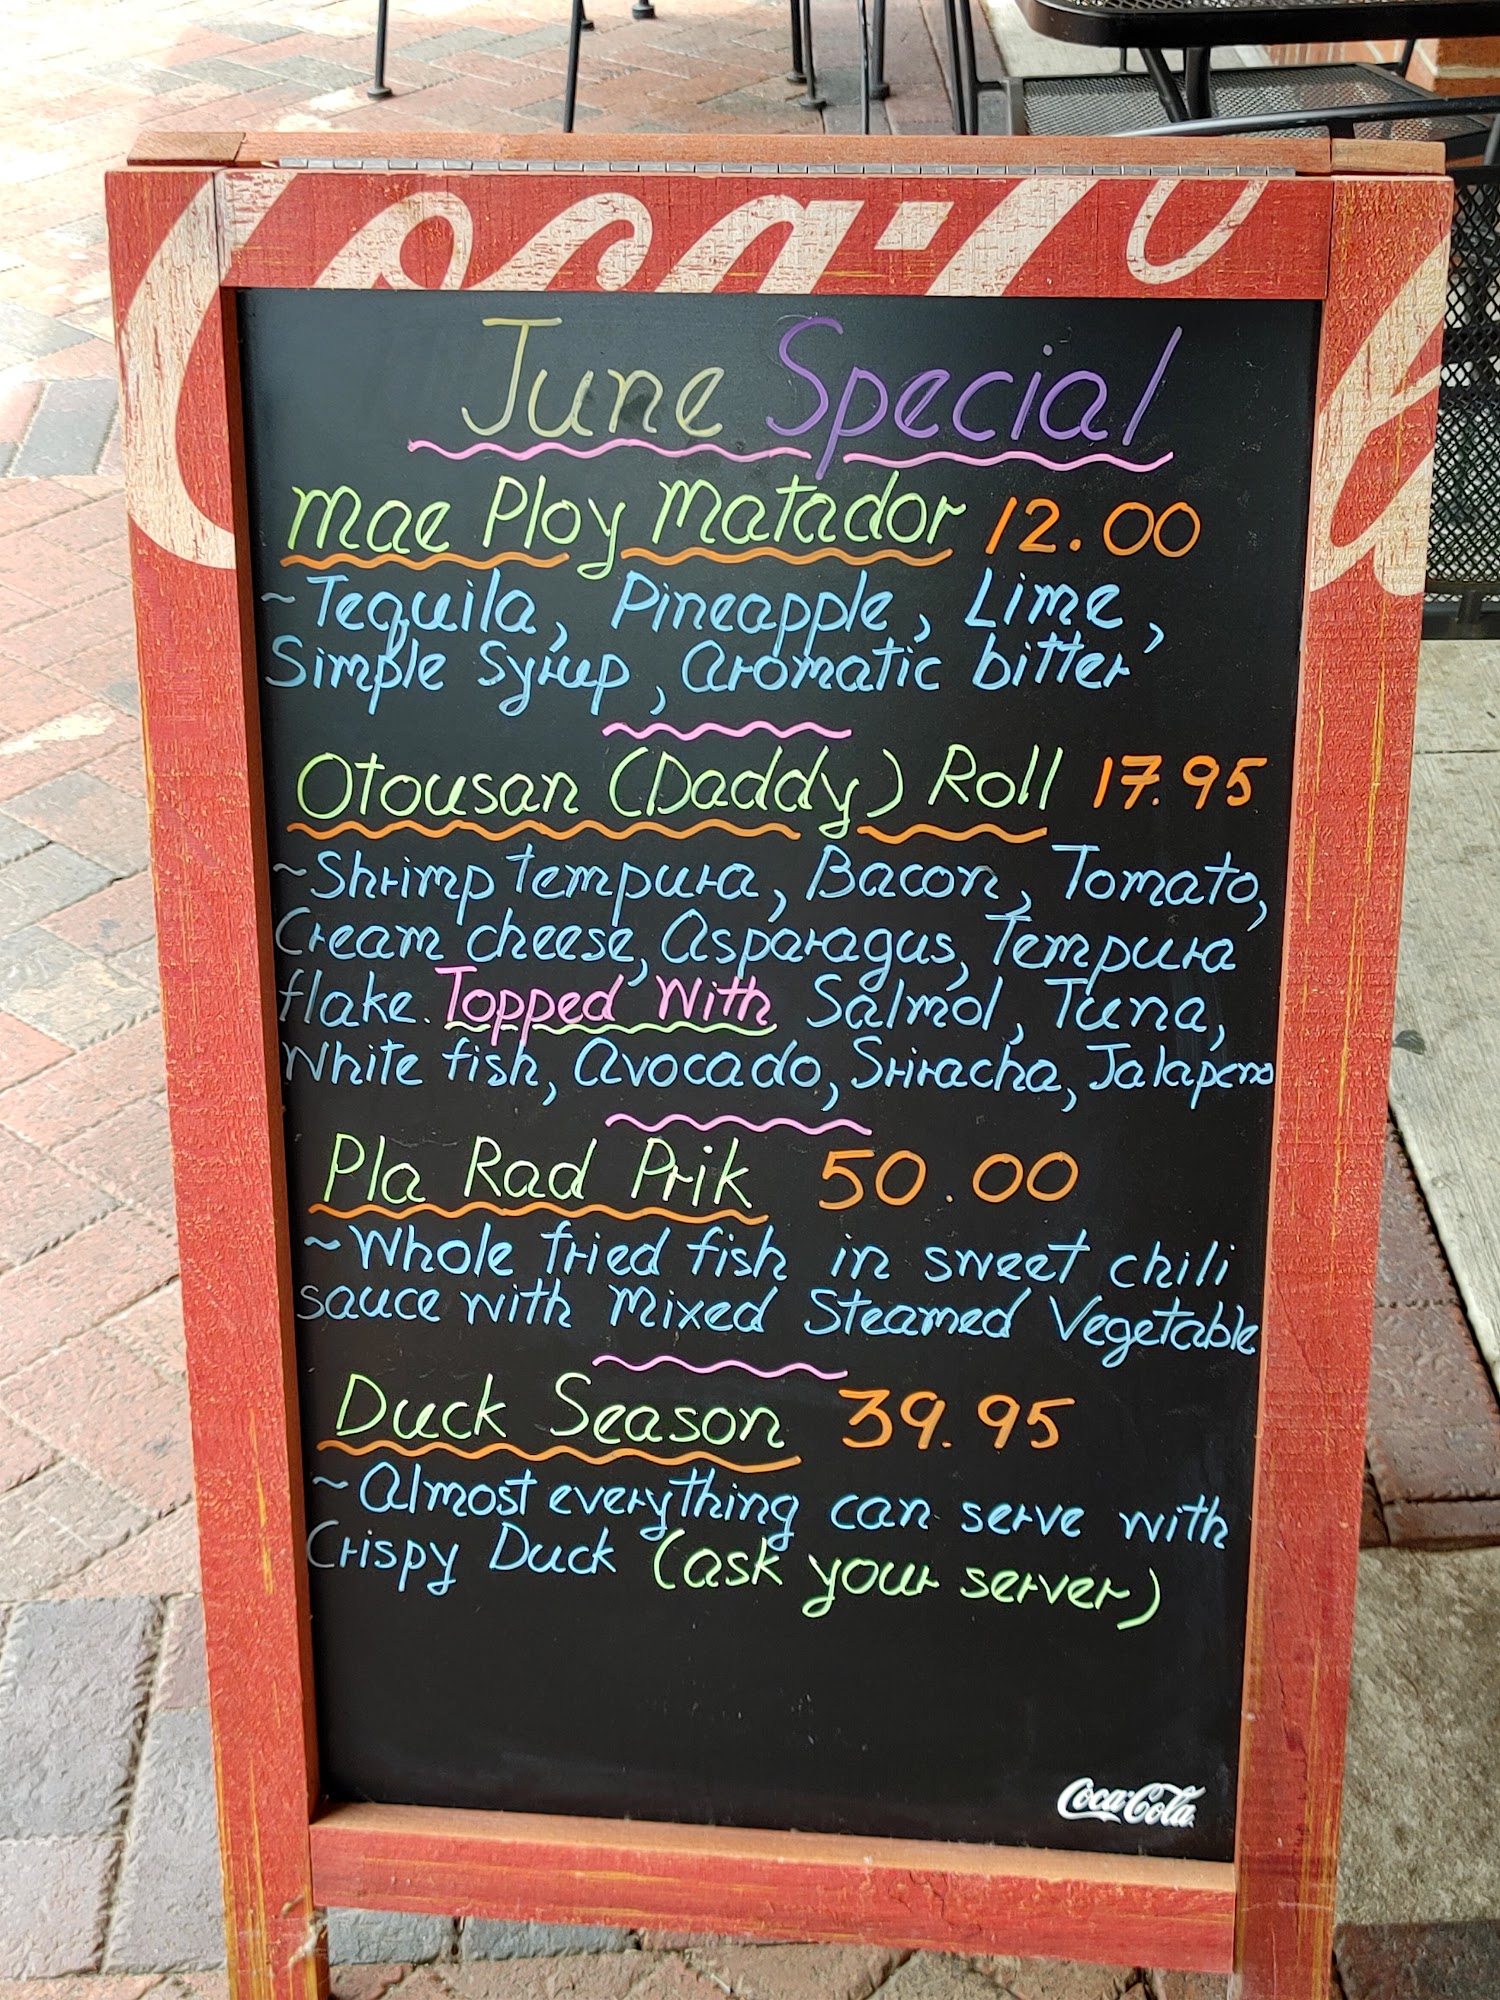 Coca-Cola
June Special
Mae Ploy Matador 12.00
~Tequila, Pineapple, Lime,
Simple Syrup, Aromatic bitter
Otousan (Daddy) Roll 17.95
~Shrimp tempura, Bacon, Tomato,
Cream cheese, Asparagus, Tempura
flake. Topped With Salmol, Tuna,
White fish, Avocado, Sriracha, Jalapeno
Pla Rad Prik 50.00
~Whole fried fish in sweet chili
sauce with Mixed Steamed Vegetable
Duck Season 39.95
~Almost everything can serve with
Crispy Duck (ask your server)
Coca-Cola